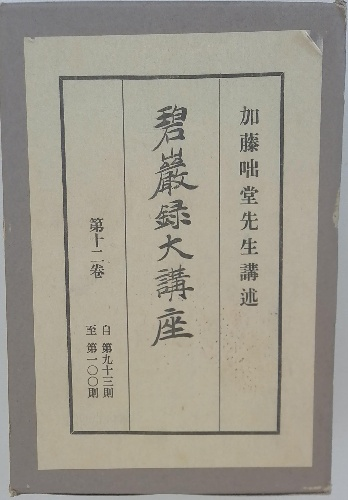 加藤咄堂先生講述
碧巖録大講座
第十二卷
自 第九十三則
至 第一〇〇則